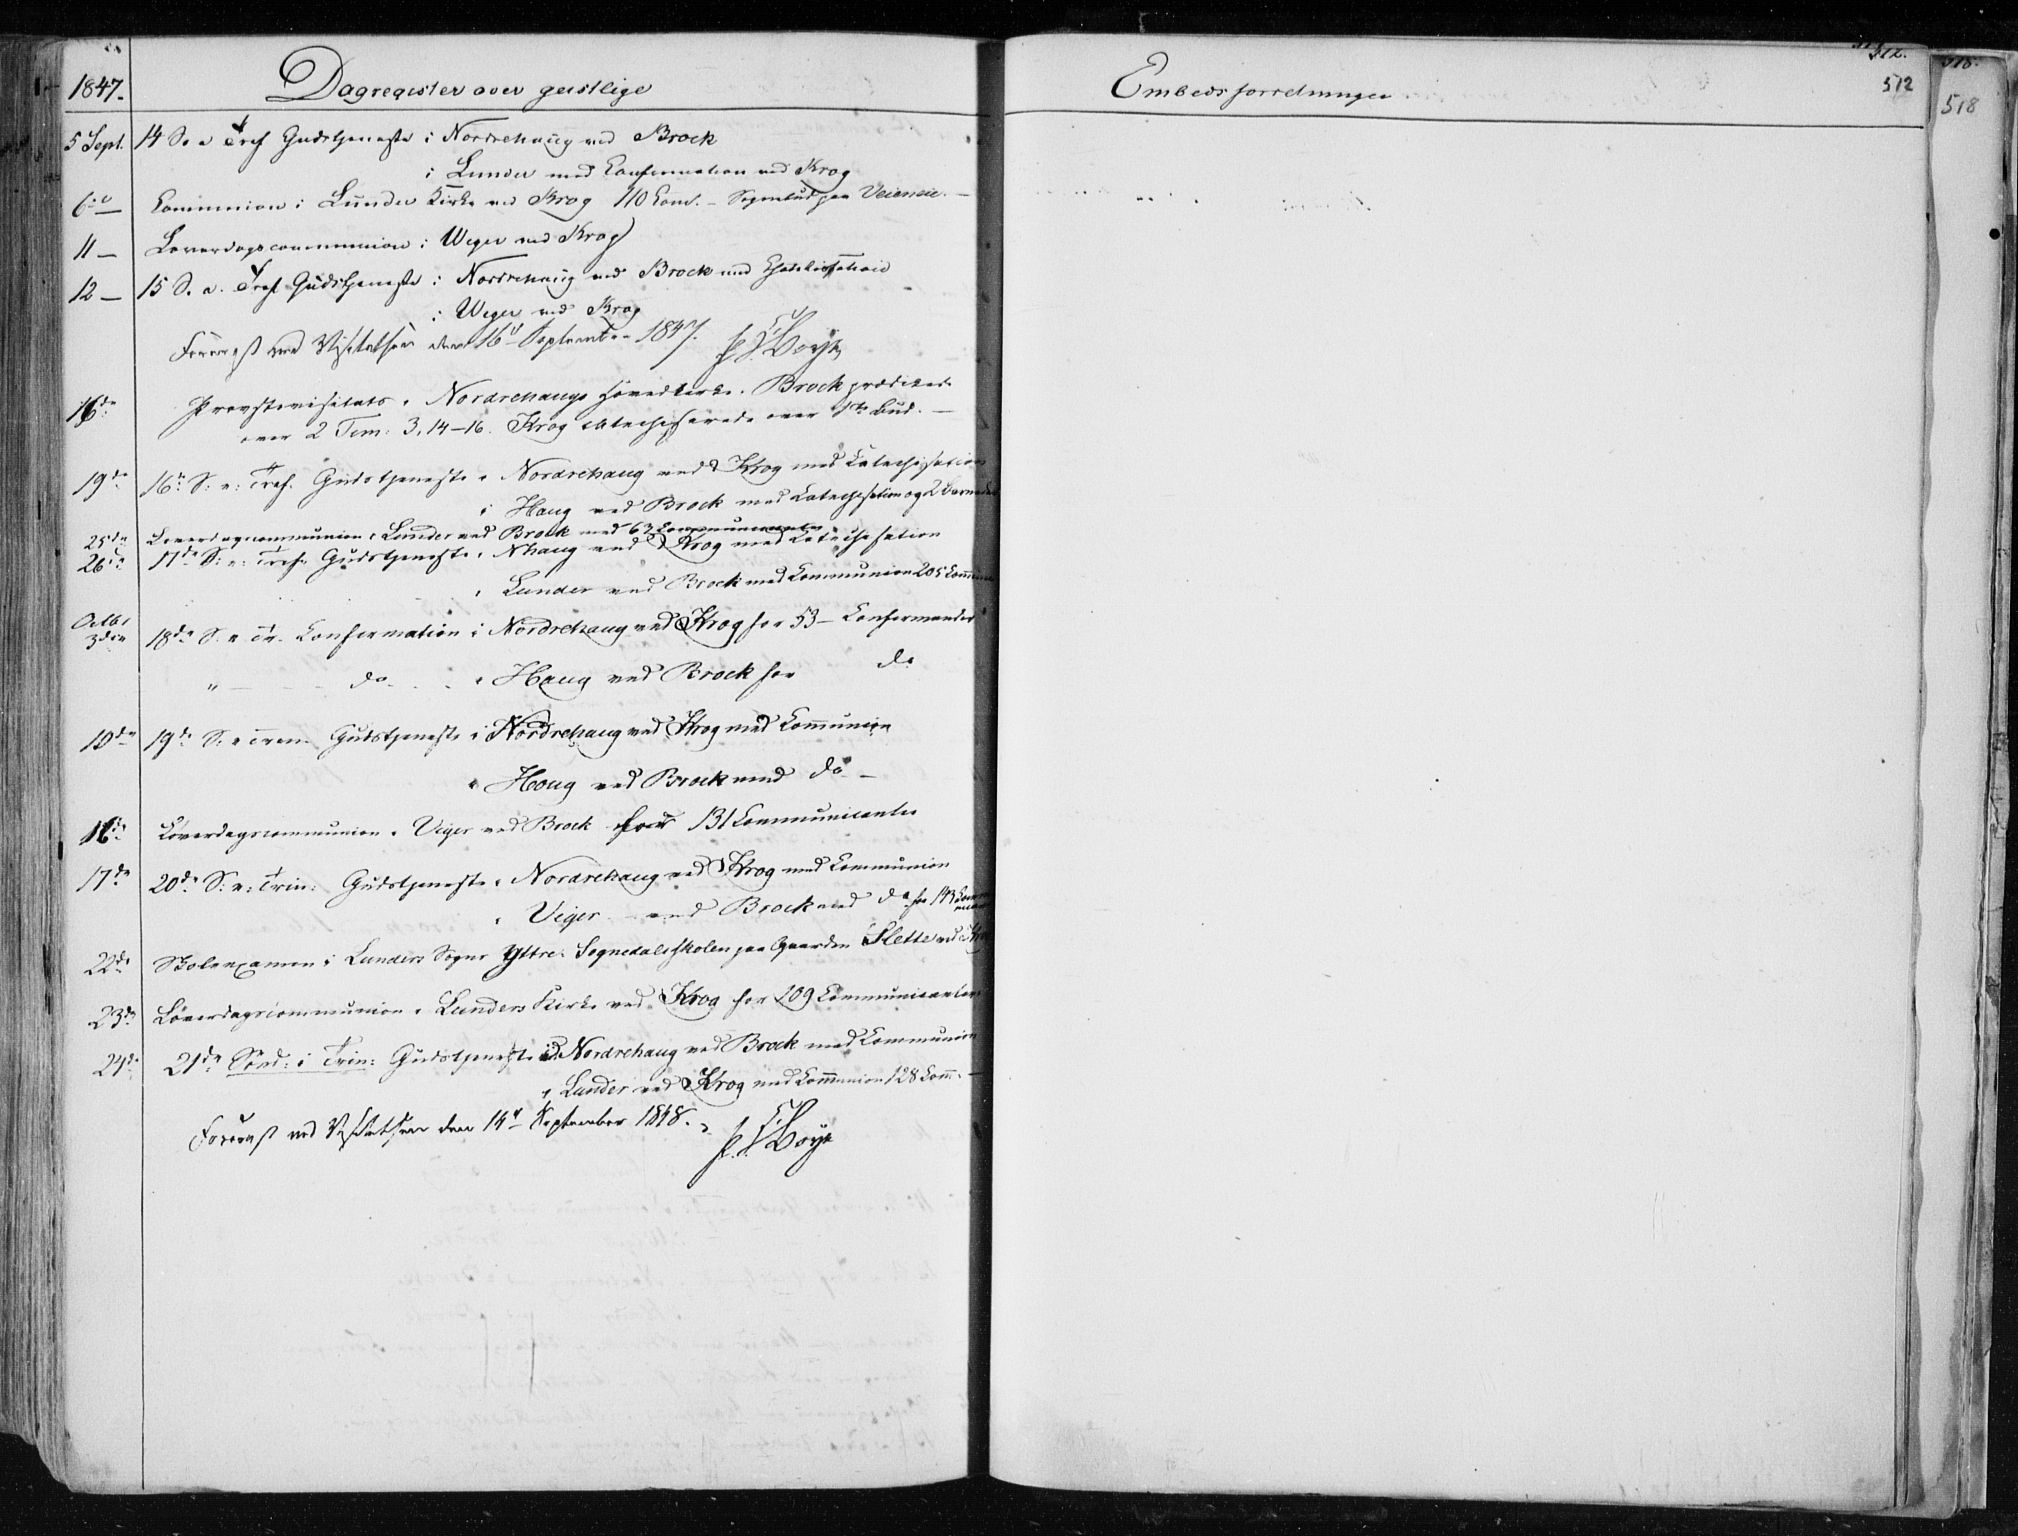 1847.
Dagregister over geistlige
Embedsforretninger
512.
512
518.
518
5 Sept. 14 S. e Tref Gudstjeneste i Nordrehaug ved Brock
i Lunder med Confirmation ved Krog
6te — Communion i Lunder Kirke ved Krog 110 Com. – Sognebud paa Veieneie. —
11 — Løverdagscommunion i Weger ved Krog
12 — 15 S. e. Tref Gudstjeneste i Nordrehaug ved Brock med Chatekisation
i Weger ved Krog
Foreviist ved Visitatsen den 16de September 1847.
16de Provstevisitats i Nordrehaugs Hovedkirke. Brock prædikede
over 2 Tim: 3, 14–16. Krog catechiserede over 1ste Bud. —
19de 16de S: e: Tref. Gudstjeneste i Nordrehaug ved Krog med Katechisation
i Haug ved Brock med Katechisation og 2 Barnedaab
25de Løverdagscommunion i Lunder ved Brock med 63 Communicanter
26de 17de S: e: Tref. Gudstjeneste i Nhaug ved Krog med Katechisation
i Lunder ved Brock med Kommunion 205 Komm
Octbr
3die 18de S. e Tr. Confirmation i Nordrehaug ved Krog for 53 – Confirmander
" — do — i Haug ved Brock for do
10de 19de S. e Trin. Gudstjeneste i Nordrehaug ved Krog med Communion
i Houg ved Brock med do —
16de Løverdagscommunion i Viger ved Brock for 131 Communicanter
17de 20de S: e: Trin: Gudstjeneste i Nordrehaug ved Krog med Communion
i Viger ved Brock med do for 143 Comm
22de Skoleexamen i Lunders Sogns Yttre: Sognedalsskolen paa Gaarden Slette ved Krog
23de Løverdagscommunion i Lunders Kirke ved Krog for 109 Communicanter
24de 21de Sønd: e Trin: Gudstjeneste i Nordrehaug ved Brock med Communion
i Lunder ved Krog med Communion 128 Comm. —
Foreviist ved Visitatsen den 14de September 1848.